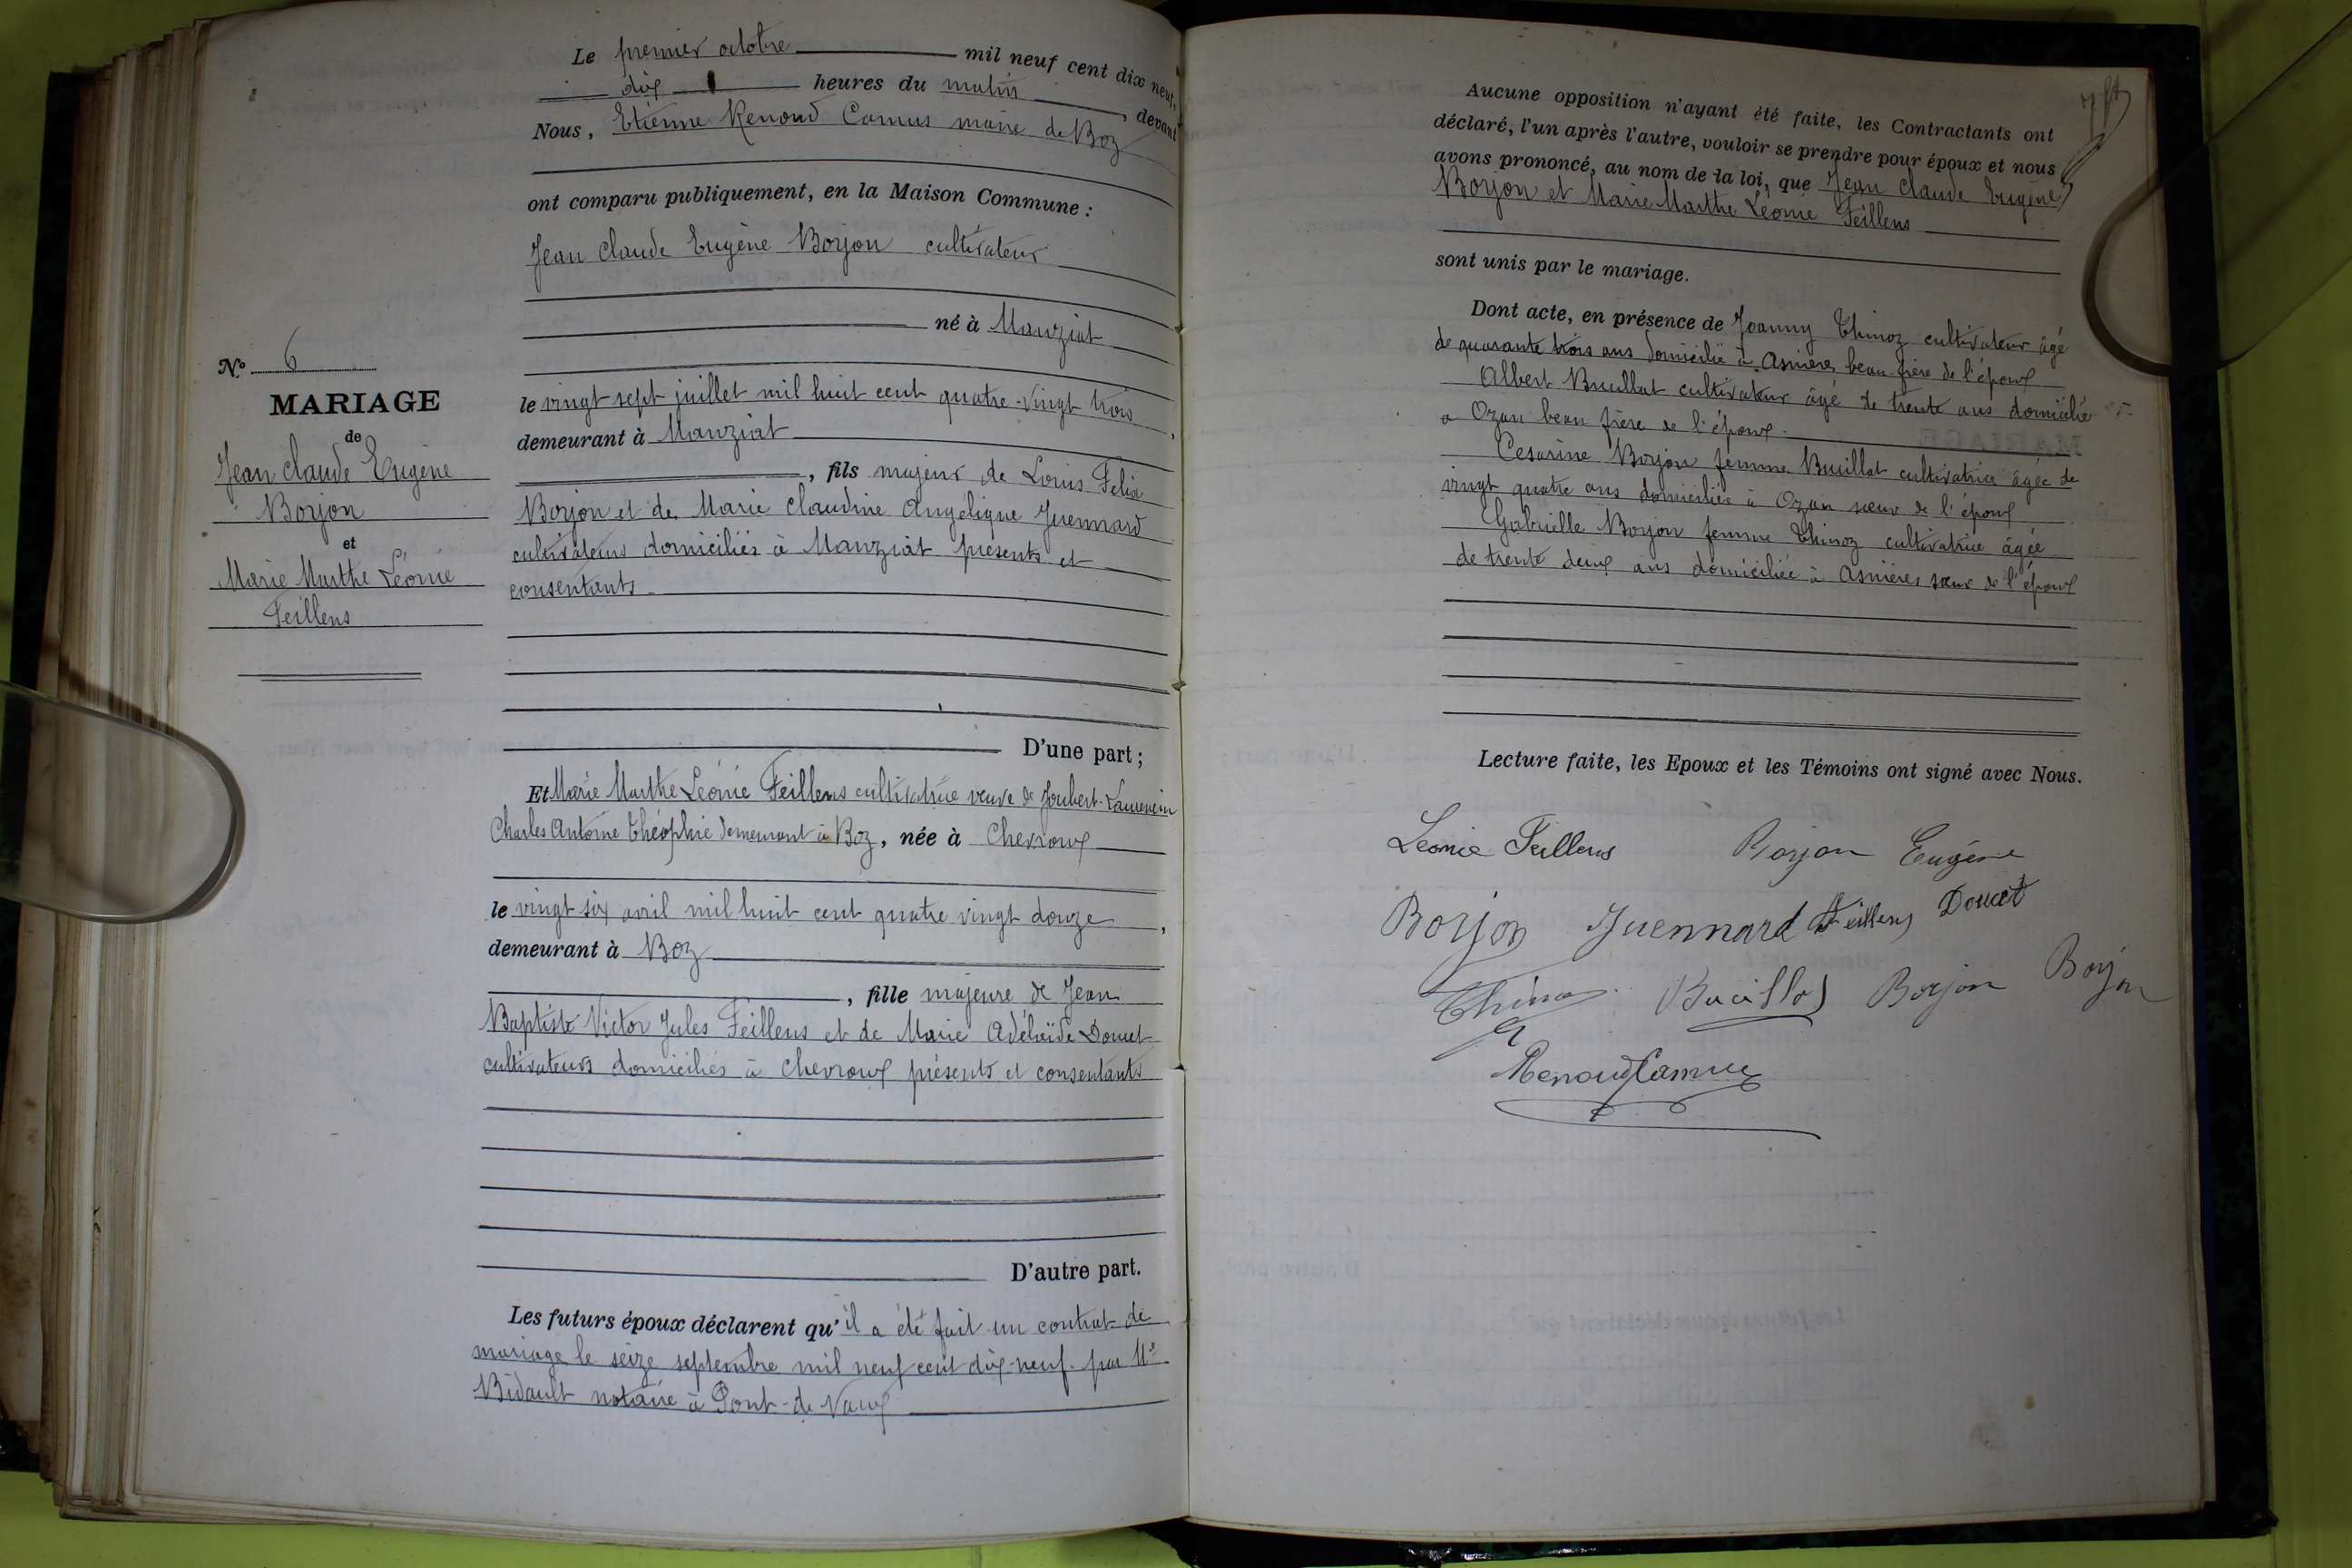 Le premier octobre mil neuf cent dix neuf,
dix heures du matin, devant
Nous, Etienne Renoud Camus maire de Boz
ont comparu publiquement, en la Maison Commune :
Jean Claude Eugène Borjon cultivateur
né à Manziat
le vingt sept juillet mil huit cent quatre-vingt trois,
demeurant à Manziat
, fils majeur de Louis Felix
Borjon et de Marie Claudine Angélique Juennard
cultivateurs domiciliés à Manziat présents et
consentants
D'une part ;
Et Marie Marthe Léonie Feillens cultivatrice veuve de Joubert-Laurencin
Charles Antoine Théophie demeurant à Boz, née à Chevroux
le vingt six avril mil huit cent quatre vingt douze,
demeurant à Boz
, fille majeure de Jean
Baptiste Victor Jules Feillens et de Marie Adélaïde Doucet
cultivateurs domiciliés à Chevroux présents et consentants
D'autre part.
Les futurs époux déclarent qu'il a été fait un contrat de
mariage le seize septembre mil neuf cent dix-neuf par Me
Bidault notaire à Pont-de-Vaux
No 6
MARIAGE
de
Jean Claude Eugène
Borjon
et
Marie Marthe Léonie
Feillens
Aucune opposition n'ayant été faite, les Contractants ont
déclaré, l'un après l'autre, vouloir se prendre pour époux et nous
avons prononcé, au nom de la loi, que Jean Claude Eugène
Borjon et Marie Marthe Léonie Feillens
sont unis par le mariage.
Dont acte, en présence de Joanny Thinoz cultivateur âgé
de quarante trois ans domicilié à Asnières beau frère de l'époux
Albert Buiillat cultivateur âgé de trente ans domicilié
a Ozan beau frère de l'époux.
Cesarine Borjon femme Buiillat cultivatrice âgée de
vingt quatre ans domiciliée à Ozan sœur de l'époux
Gabrielle Borjon femme Thinoz cultivatrice âgée
de trente deux ans domiciliée à Asnières sœur de l'époux
Lecture faite, les Epoux et les Témoins ont signé avec Nous.
Léonie Feillens Borjon Eugène
Borjon Juennard Feillens Doucet
Thinoz Borjon Borjon
Renoud Camus